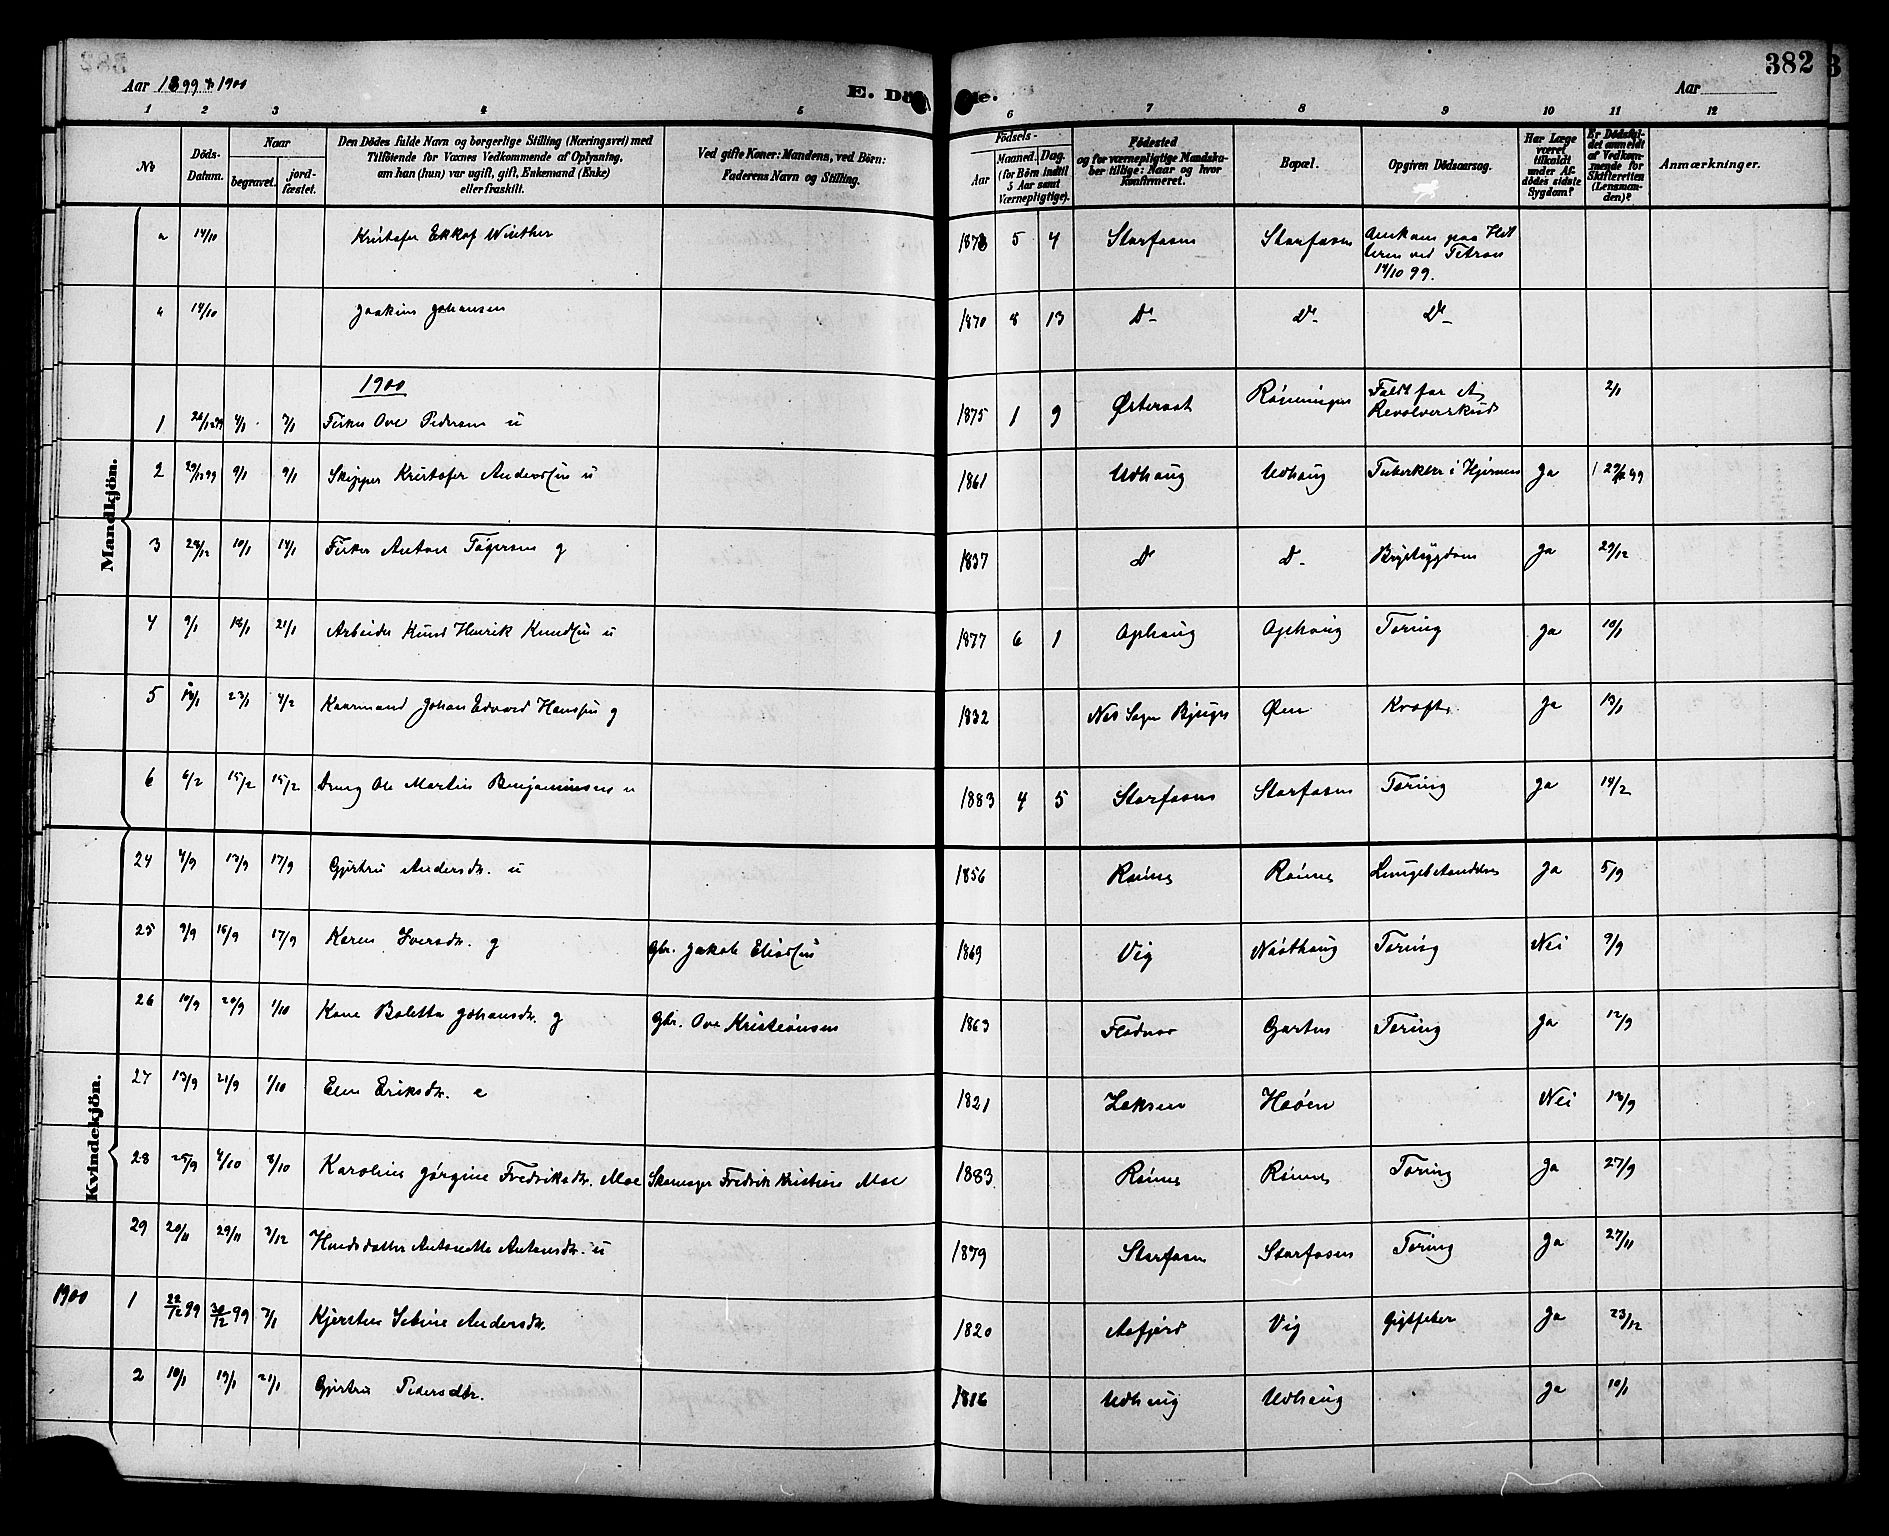 382
Aar 1899 & 1900
E. Dø de.
Aar
1 2 3 4 5 6 7 8 9 10 11 12
No
Döds-Datum.
Naar
begravet.
jord-fæstet.
Den Dödes fulde Navn og borgerlige Stilling (Næringsvei) med
Tilföiende for Vaxnes Vedkommende af Oplysning,
om han (hun) var ugift, gift, Enkemand (Enke)
eller fraskilt.
Ved gifte Koner: Mandens, ved Börn:
Faderens Navn og Stilling.
Födsels-
Aar
Maaned. Dag.
(for Börn indtil
5 Aar samt
Værnepligtige).
Födested
og for værnepligtige Mandska-
ber tillige: Naar og hvor
Konfirmeret.
Bopæl.
Opgiven Dödsaarsag.
Har Læge
været
tilkaldt
under Af-
dödes sidste
Sygdom?
Er Dödsfal-
det anmeldt
af Vedkom-
mende for
Skifteretten
(Lensman-
den)?
Anmærkninger.
Mandkjön.
14/10 Kristofer Ekkof Winther 1873 5 4 Storfosen Storfosen Omkom paa Hit
teren ved Titran
14/10 99.
14/10 Joakim Johansen 1870 8 13 Do Do Do
1900
1 26/12 99 4/1 7/1 Fisker Ove Pedersen u 1875 1 9 Østeraat Rönningen Faldt for A
Revolverskud 2/1
2 29/12 99 9/1 9/1 Skipper Kristofer Anderssen u 1861 Udhaug Udhaug Tuberkler i Hjernen Ja 29/12 99
3 28/12 10/1 14/1 Fisker Anton Tögersen g 1837 Do Do Brystsygdom Ja 29/12
4 9/1 18/1 21/1 Arbeider Knud Henrik Knudsen u 1877 6 1 Ophaug Ophaug Tæring Ja 10/1
5 10/1 23/1 4/2 Kaarmand Johan Edvard Hanssen g 1832 Nes Sogn Bjugn Øen Kræft Ja 13/1
6 6/2 15/2 15/2 Dreng Ole Martin Benjaminsen u 1883 4 5 Storfosen Storfosen Tæring Ja 14/2
Kvindekjön.
24 4/9 13/9 17/9 Gjertru Andersdtr. u 1856 Rönnes Rönnes Lungebetændelse Ja 5/9
25 9/9 16/9 17/9 Karen Iversdtr. g Gbr. Jakob Eliassen 1869 Vig Næsthaug Tæring Nei 9/9
26 10/9 20/9 1/10 Kone Boletta Johansdtr. g Gbr. Ove Kristiansen 1863 Flatnes Garten Tæring Ja 12/9
27 13/9 21/9 1/10 Elen Eriksdtr. e 1821 Leksen Haöen Nei 18/9
28 25/9 4/10 8/10 Karoline Jörgine Fredriksdtr. Moe Skomager Fredrik Kristian Moe 1883 Rönnes Rönnes Tæring Ja 27/9
29 20/11 29/11 3/12 Husdsdatter Antonette Antonsdtr. u 1879 Storfosen Storfosen Tæring Ja 27/11
1900 1 22/12 99 30/12 99 7/1 Kjersten Sebine Andersdtr. 1820 Aafjord Vig Gigtfeber Ja 23/12
2 10/1 19/1 21/1 Gjertru Pedersdtr. 1816 Udhaug Udhaug Ja 10/1